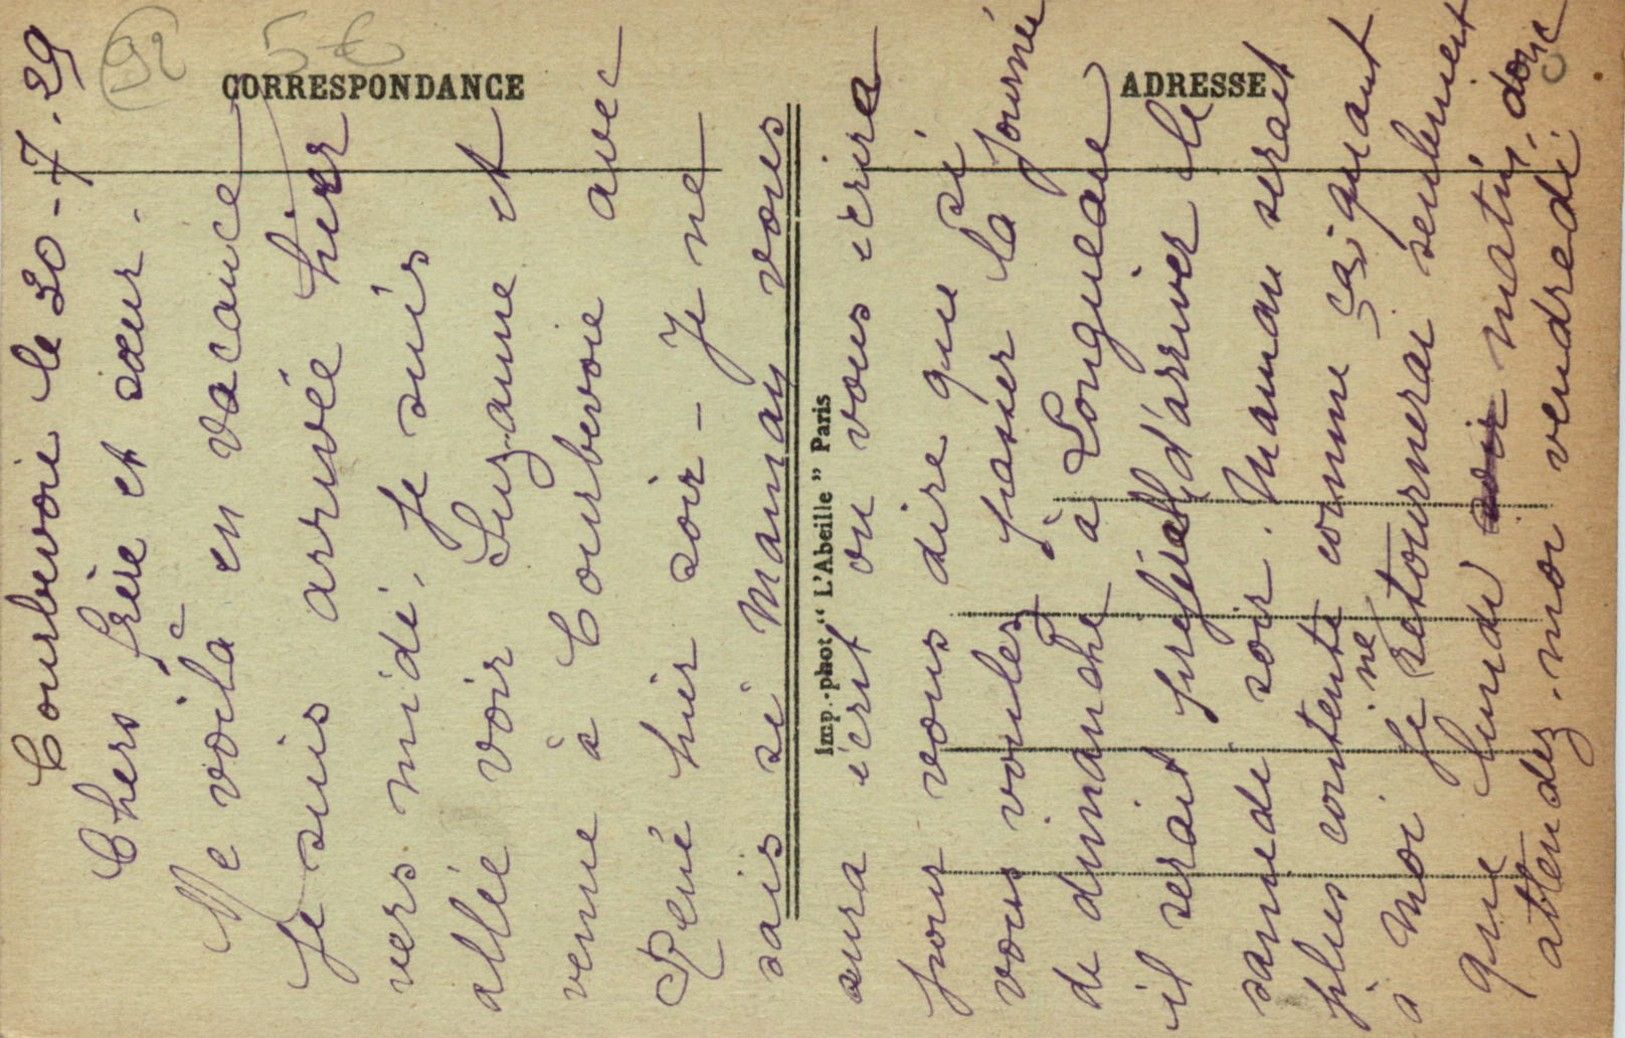 CORRESPONDANCE
ADRESSE
Imp.-phot. "L'Abeille" Paris
92
5€
Courbevoie le 30-7-29
Chers frère et sœur.
Me voilà en vacance
Je suis arrivée hier
vers midi. Je suis
allée voir Suzanne et
venue à Courbevoie avec
René hier soir - Je ne
sais si Maman vous
aura écrit ou vous écrira
pour vous dire que si
vous voulez passer la journée
de dimanche à Longueau
il serait d'arriver le
samedi soir. Maman serait
plus contente comme ça; quant
à moi je ne retournerai seulement
que lundi matin, donc
attendez-moi vendredi